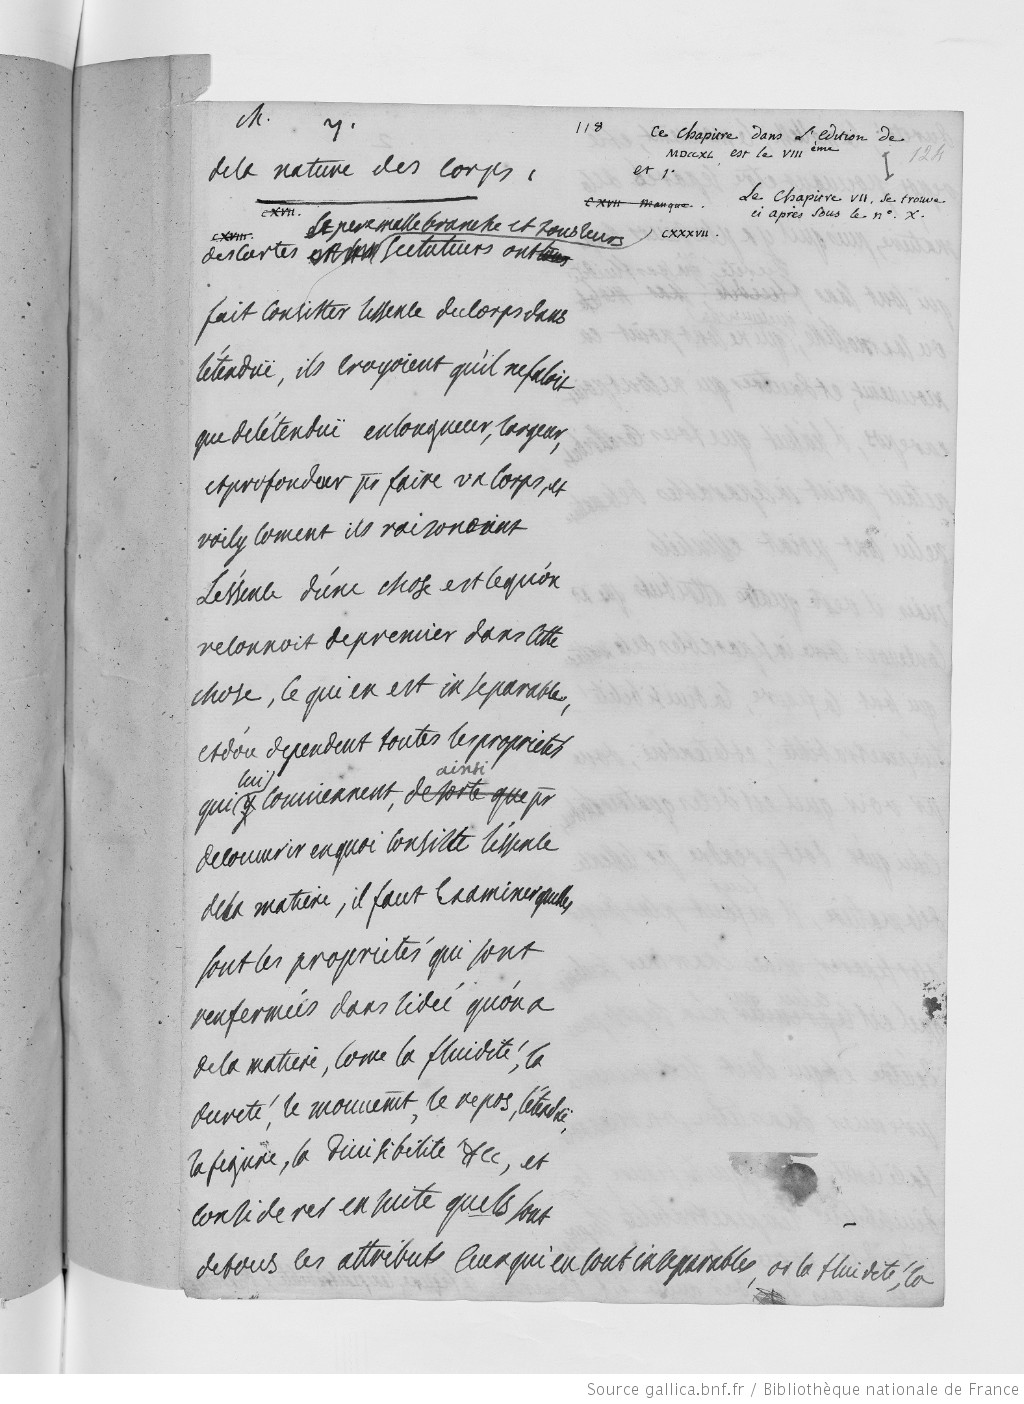 ch. 7.
118
Ce Chapitre dans L'edition de
MDCCXL, est le VIII ème
et 1r
124
de la nature des corps,
CXVII manque.
Le Chapitre VII. se trouve
ci après sous le n°. X.
CXVII.
CXVIII.
CXXXVII.
Le pere mallebranche et tous leurs
descartes sectateurs ont
fait consister l'essence du corps dans
l'étenduë, ils croyoient qu'il ne faloit
que de l'étenduë en longueur, largeur,
et profondeur pr faire un corps, et
voicy coment ils raisonoient
L'essence d'une chose est ce qu'on
reconnoit de premier dans cette
chose, ce qui en est inseparable,
et d'ou dependent toutes les proprietés
lui ainsi
qui y conviennent, de sorte que pr
decouvrir en quoi consiste l'essence
de la matiere, il faut examiner quelles
sont les proprietés qui sont
renfermées dans l'idée qu'on a
de la matiere, come la fluidité, la
dureté, le mouvemt, le repos, l'étenduë,
la figure, la divisibilité &c, et
considerer ensuite quels sont
de tous les attributs ceux qui en sont inseparables, or la fluidité, la
Source gallica.bnf.fr / Bibliothèque nationale de France